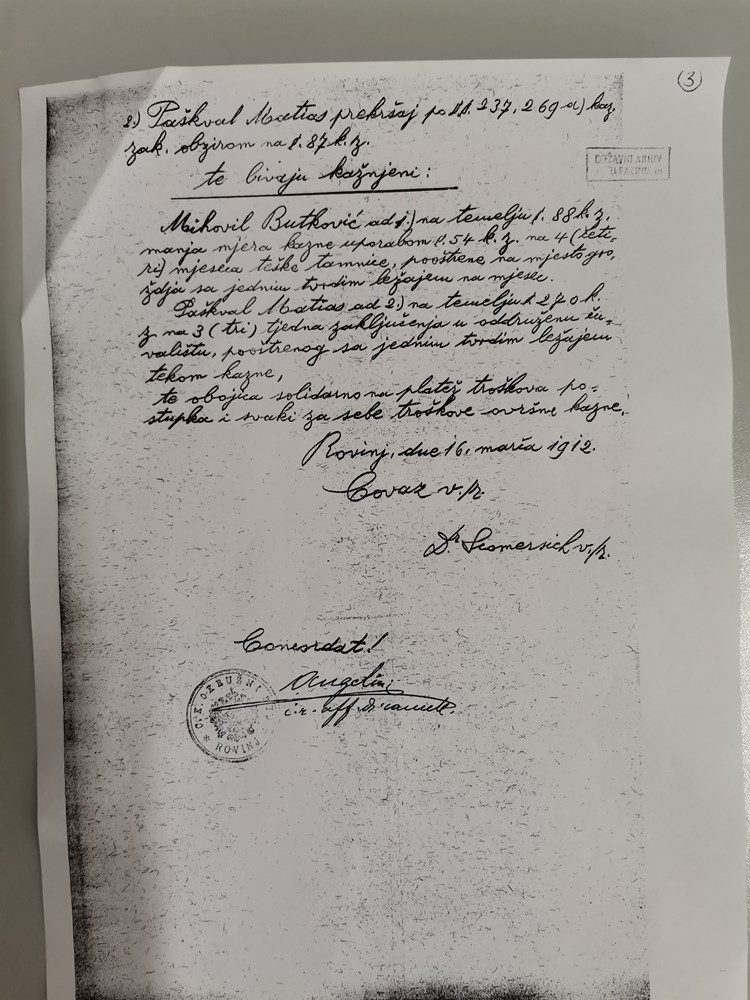 ③
2.) Paškval Matias prekršaj po §§. 237, 269 a) kaz.
zak. obzirom na §. 87 k. z.
DRŽAVNI ARHIV
U PAZINU
te bivaju kažnjeni:
Mihovil Butković ad 1.) na temelju §. 88 k. z.
manja mjera kazne uporabom §. 54 k. z. na 4 (četi-
ri) mjeseca teške tamnice, pooštrene na mjesto gvo-
ždja sa jednim tvrdim ležajem na mjesec.
Paškval Matias ad 2.) na temelju §. 270 k.
z. na 3 (tri) tjedna zaključenja u oddruženu ču-
valištu, pooštrenog sa jednim tvrdim ležajem
tekom kazne,
te obojica solidarno na platež troškova po=
stupka i svaki za sebe troškove ovršne kazne.
Rovinj, dne 16. marča 1912.
Covaz v./r.
Dr. v./r.
Concordat!
Angelini
i. r. uff. di cancell.
C. K. OKRUŽNI
* ROVINJ